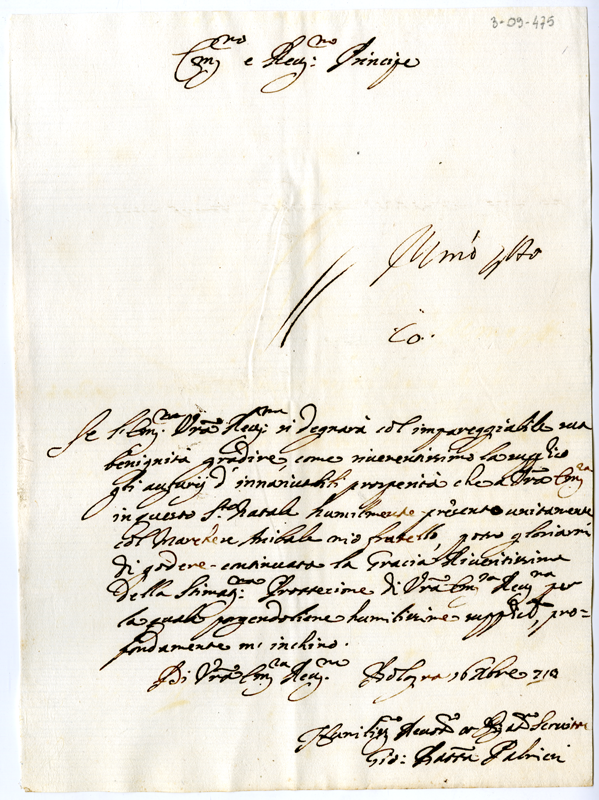 3-09-475
Em.mo e Rev.mo Principe
Se l'Em.za Vra Rev.ma si degnarà col impareggiabile sua
benignità gradire, come riverentissimo la supplico
gli augurij d'innarrivabili prosperità che a Vra Em.za
in questo S.to Natale humilmente presento unitamente
col Marchese Anibale mio fratello, potrò gloriarmi
di godere continuata la Gracia Riveritissima
della Stimatiss.ma Protezione di Vra Em.za Rev.ma per
la quale porgendolene humilissime suppliche, pro=
fondamente mi inchino.
Di Vra Em.za Rev.ma Bologna 16 Xbre 710
Humiliss.mo Devot.mo et Servitore
Gio: Batta